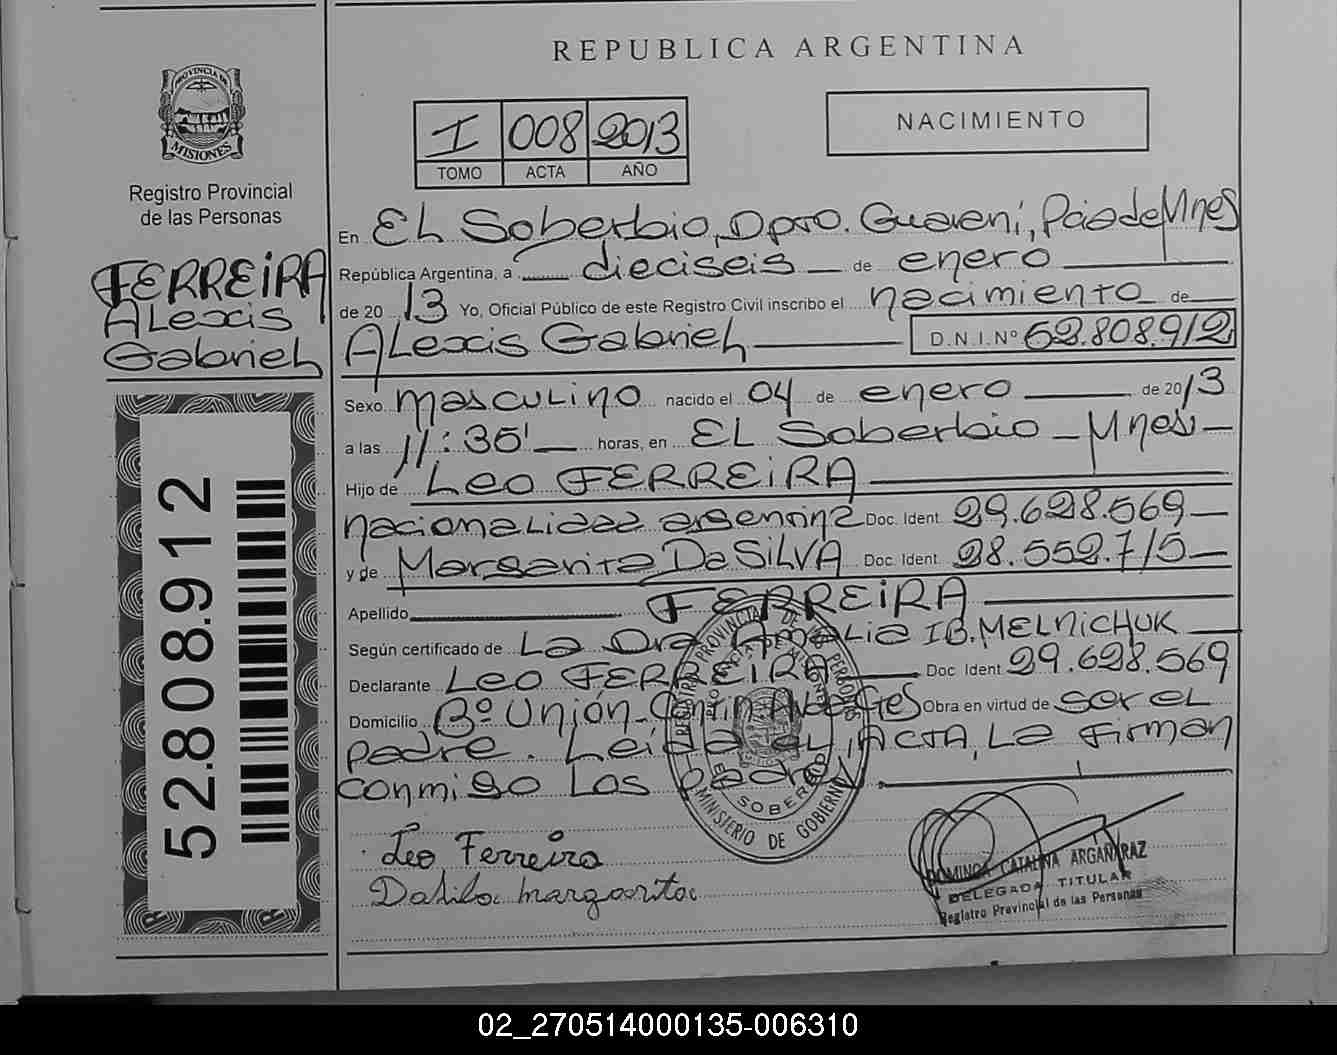 REPUBLICA ARGENTINA
PROVINCIA DE
MISIONES
Registro Provincial
de las Personas
FERREiRA
ALexis
Gabriel
52.808.912
I 008 2013
TOMO ACTA AÑO
NACIMIENTO
En EL Soberbio, Dpto. Guaraní, Pcia de Mnes
República Argentina, a dieciseis de enero
de 20 13 Yo, Oficial Público de este Registro Civil inscribo el nacimiento de
ALexis Gabriel D.N.I.Nº 52.808.912
Sexo masculino nacido el 04 de enero de 2013
a las 11:35' horas, en EL Soberbio - Mnes -
Hijo de Leo FERREiRA
nacionalidad argentina Doc. Ident. 29.628.569
y de Margarita Da SiLVA Doc. Ident. 28.552.715
Apellido FERREiRA
Según certificado de La Dra Amalia IB. MELNiCHUK
Declarante Leo FERREiRA Doc. Ident. 29.628.569
Domicilio Bº Unión Obra en virtud de ser el
padre. Leída el ACTA, La firman
conmigo Los padres
MINISTERIO DE GOBIERNO
EL SOBERBIO
Leo Ferreira
Dasilva margarita
DOMINGA CATALINA ARGAÑARAZ
DELEGADA TITULAR
Registro Provincial de las Personas
02_270514000135-006310